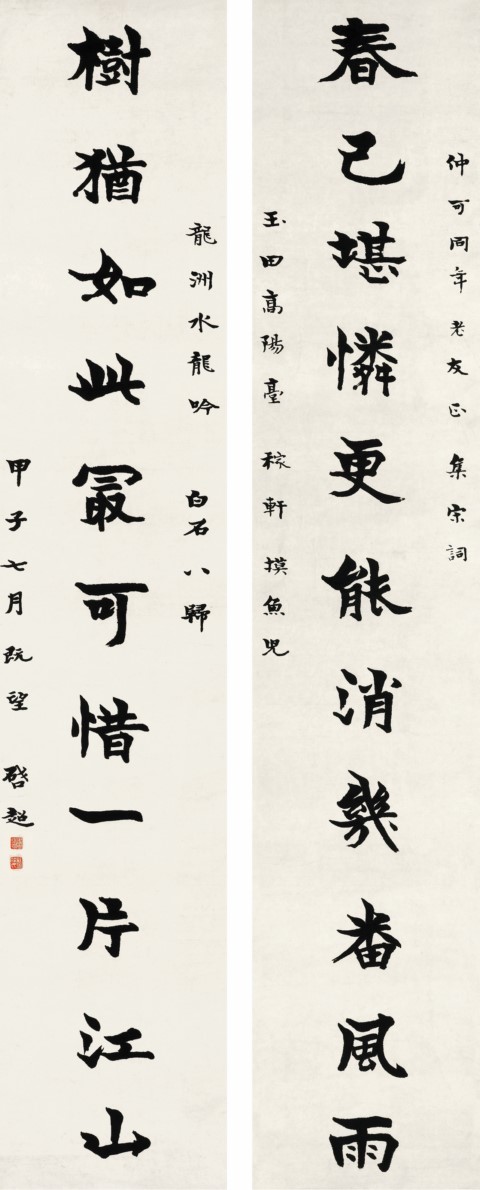 仲可同年老友正 集宋詞
春已堪憐更能消幾番風雨
玉田高陽臺 稼軒摸魚兒
龍洲水龍吟 白石八歸
樹猶如此冣可惜一片江山
甲子七月既望 啓超